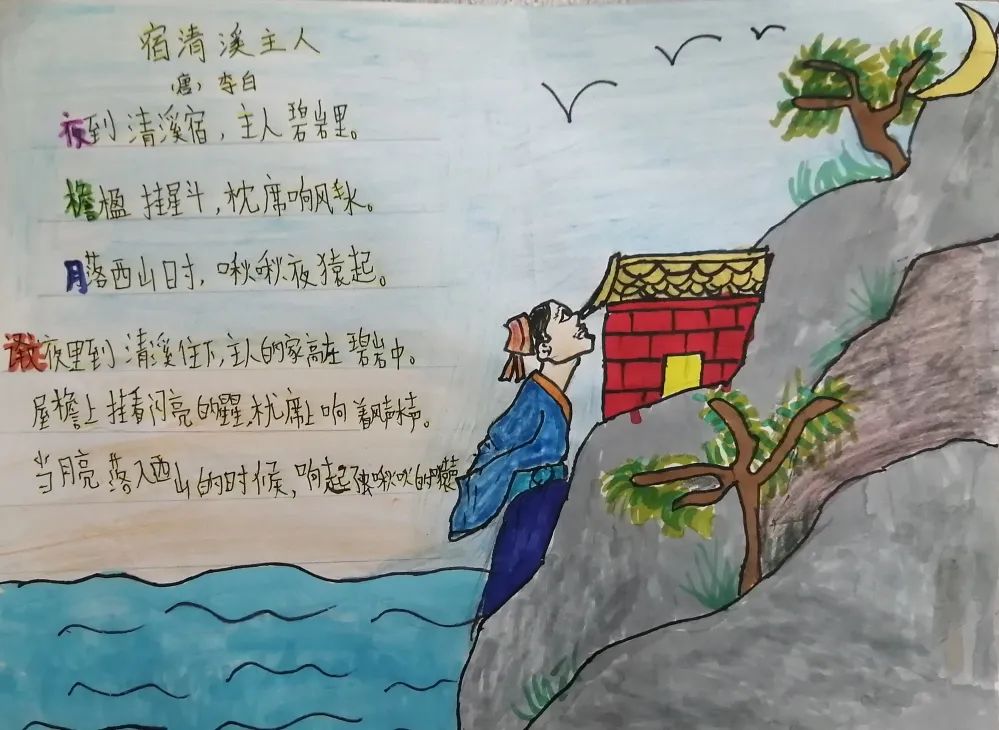 宿清溪主人
（唐）李白
夜到清溪宿，主人碧岩里。
檐楹挂星斗，枕席响风水。
月落西山时，啾啾夜猿起。
译夜里到清溪住下，主人的家高在碧岩中。
屋檐上挂着闪亮的星，枕席上响着风声水声。
当月亮落入西山的时候，响起啾啾的